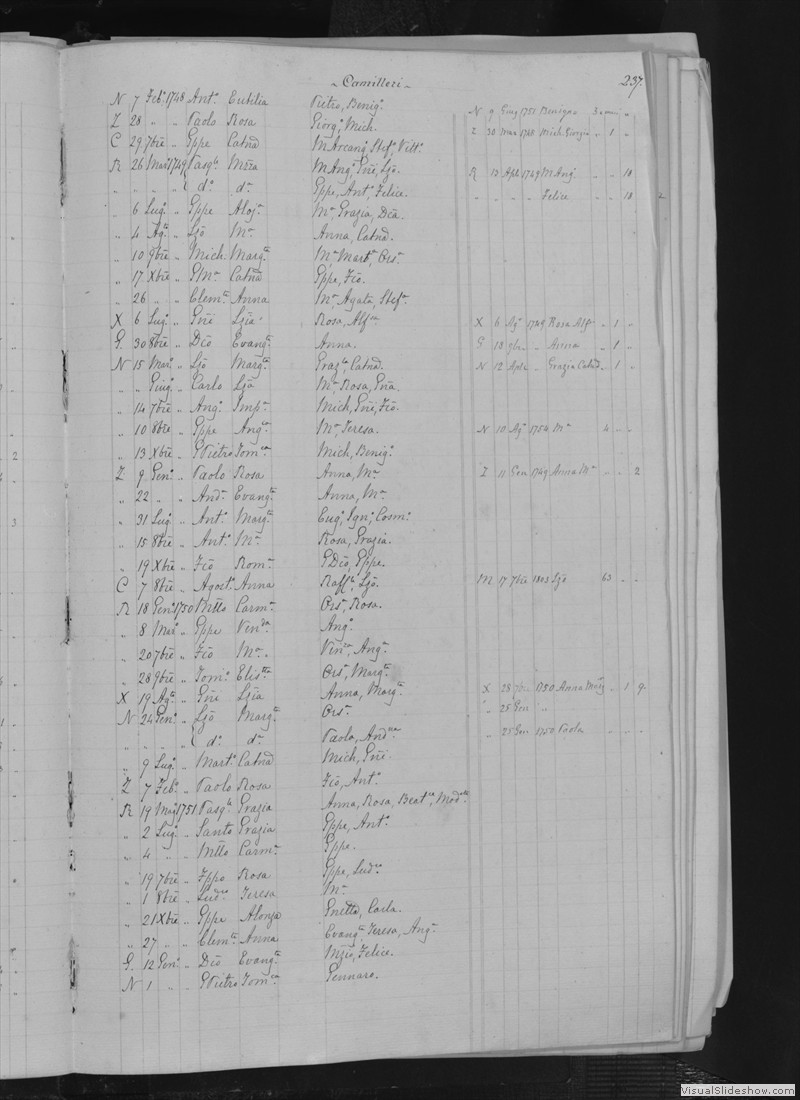 - Camilleri - 237.
N 7 Feb.º 1748 Ant.º Eutilia Pietro, Benig.º N 9 Giug 1751 Benigno 3
Z 28 " " Paolo Rosa Giorg.º, Mich. Z 30 Mar 1740 Mich. Giorgio " 1 "
C 29 7bre " Gppe Catna M Arcang, Stef.º, Vitt.º
R 26 Mar 1749 Pasq.le M Ang.º, Gni, Ljo. R 13 Aple 1749 M Ang. " " 18
" " " " { d.º d.ª Gppe, Ant.º, Felice. " " " " Felice " " 18 2
" 6 Lug.º " Gppe Aloj.ª M.ª, Grazia, Dia.
" 4 Ag.to " Ljo M.ª Anna, Catna.
" 10 9bre " Mich. Marg.ta M.ª, Mart.ª, Ors.ª
" 17 Xbre " GM.ª Catna Gppe, Fio.
" 26 " " Clem.te Anna M.ª, Agata, Stef.ª
X 6 Lug.º " Gni Ljia Rosa, Alf.na X 6 Ag.º 1749 Rosa Alf.ª " 1 "
G. 30 8bre " Dio Evang.ta Anna. G 18 9br " " Anna " 1 "
N 15 Mar.º " Ljo Marg.ta Graz.la, Catna. N 12 Aple " Grazia Catna " 1 "
" " Giug.º " Carlo Ljo M.ª Rosa, Gna.
" 14 7bre " Ang.º Imp.ª Mich, Gni, Fio.
" 10 8bre " Gppe Ang.ca M.ª, Teresa. N 10 Ag.º 1754 M.ª 4 " "
" 13 Xbre " G Pietro Tom.ca Mich, Benig.º
Z 9 Gen.º " Paolo Rosa Anna, M.ª Z 11 Gen 1749 Anna M.ª " " 2
" 22 " " And.ª Evang.ta Anna, M.ª
" 31 Lug.º " Ant.º Marg.ta Eug.º, Ign.º, Cosm.º
" 15 8bre " Ant.º M.ª Rosa, Grazia.
" 19 Xbre " Fio Rom.ª G Dio, Gppe.
C 7 8bre " Agost.º Anna Raff.le, Ljo. M 17 7bre 1803 Ljo 63 " "
R 18 Gen.º 1750 Mtto Carm.ª Ors.ª, Rosa.
" 8 Mar.º " Gppe Ven.da Ang.º
" 20 7bre " Fio M.ª Vin.za, Ang.ª
" 28 9bre " Tom.º Elis.tta Ors.ª, Marg.ta
X 19 Ag.to " Gni Ljia Anna, Marg.ta X 28 7br 1750 Anna Marg " 1 9.
N 24 Gen.º " Ljo Marg.ta Ors.ª " 25 Gen "
" " " " { d.º d.ª Paola, And.na " 25 Gen 1750 Paola " " "
" 9 Lug.º " Mart.º Catna Mich, Gni.
Z 7 Feb.º " Paolo Rosa Fio, Ant.º
R 19 Mag 1751 Pasq.le Grazia Anna, Rosa, Beat.ce, Mod.ta
" 2 Lug.º " Santo Grazia Gppe, Ant.º
" 4 " " Mtto Carm.ª Gppe.
" 19 7bre " Fppo Rosa Gppe, Lud.ª
" 1 8bre " Teresa M.ª
" 21 Xbre " Gppe Alonja Gnetta, Carla.
" 27 " " Clem.te Anna Evang.ta, Teresa, Ang.ª
G. 12 Gen.º " Dio Evang.ta Nzio, Felice.
N 1 " " G Pietro Tom.ca Gennaro.
VisualSlideshow.com